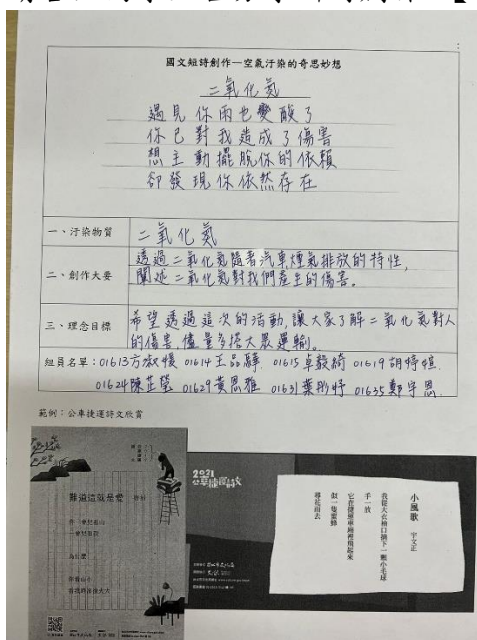 國文短詩創作—空氣汙染的奇思妙想
二氧化氮
遇見你雨也變酸了
你已對我造成了傷害
想主動擺脫你的依賴
卻發現你依然存在
一、汙染物質
二氧化氮
二、創作大要
透過二氧化氮隨著汽車煙氣排放的特性,
闡述二氧化氮對我們產生的傷害。
三、理念目標
希望透過這次的活動,讓大家了解二氧化氮對人
的傷害,儘量多搭大眾運輸。
組員名單:01613方淑媛 01614王品驊 01615卓毅綺 01619胡婷愃
01624陳芷瑩 01629黃恩雅 01631葉彤妤 01635鄭宇恩
範例:公車捷運詩文欣賞
難道這就是愛
為什麼
2021
公車捷運詩文
小風歌 宇文正
我從大衣袖口摘下一顆小毛球
手一放
它在捷運車廂裡飛起來
似一隻蜜蜂
尋花而去